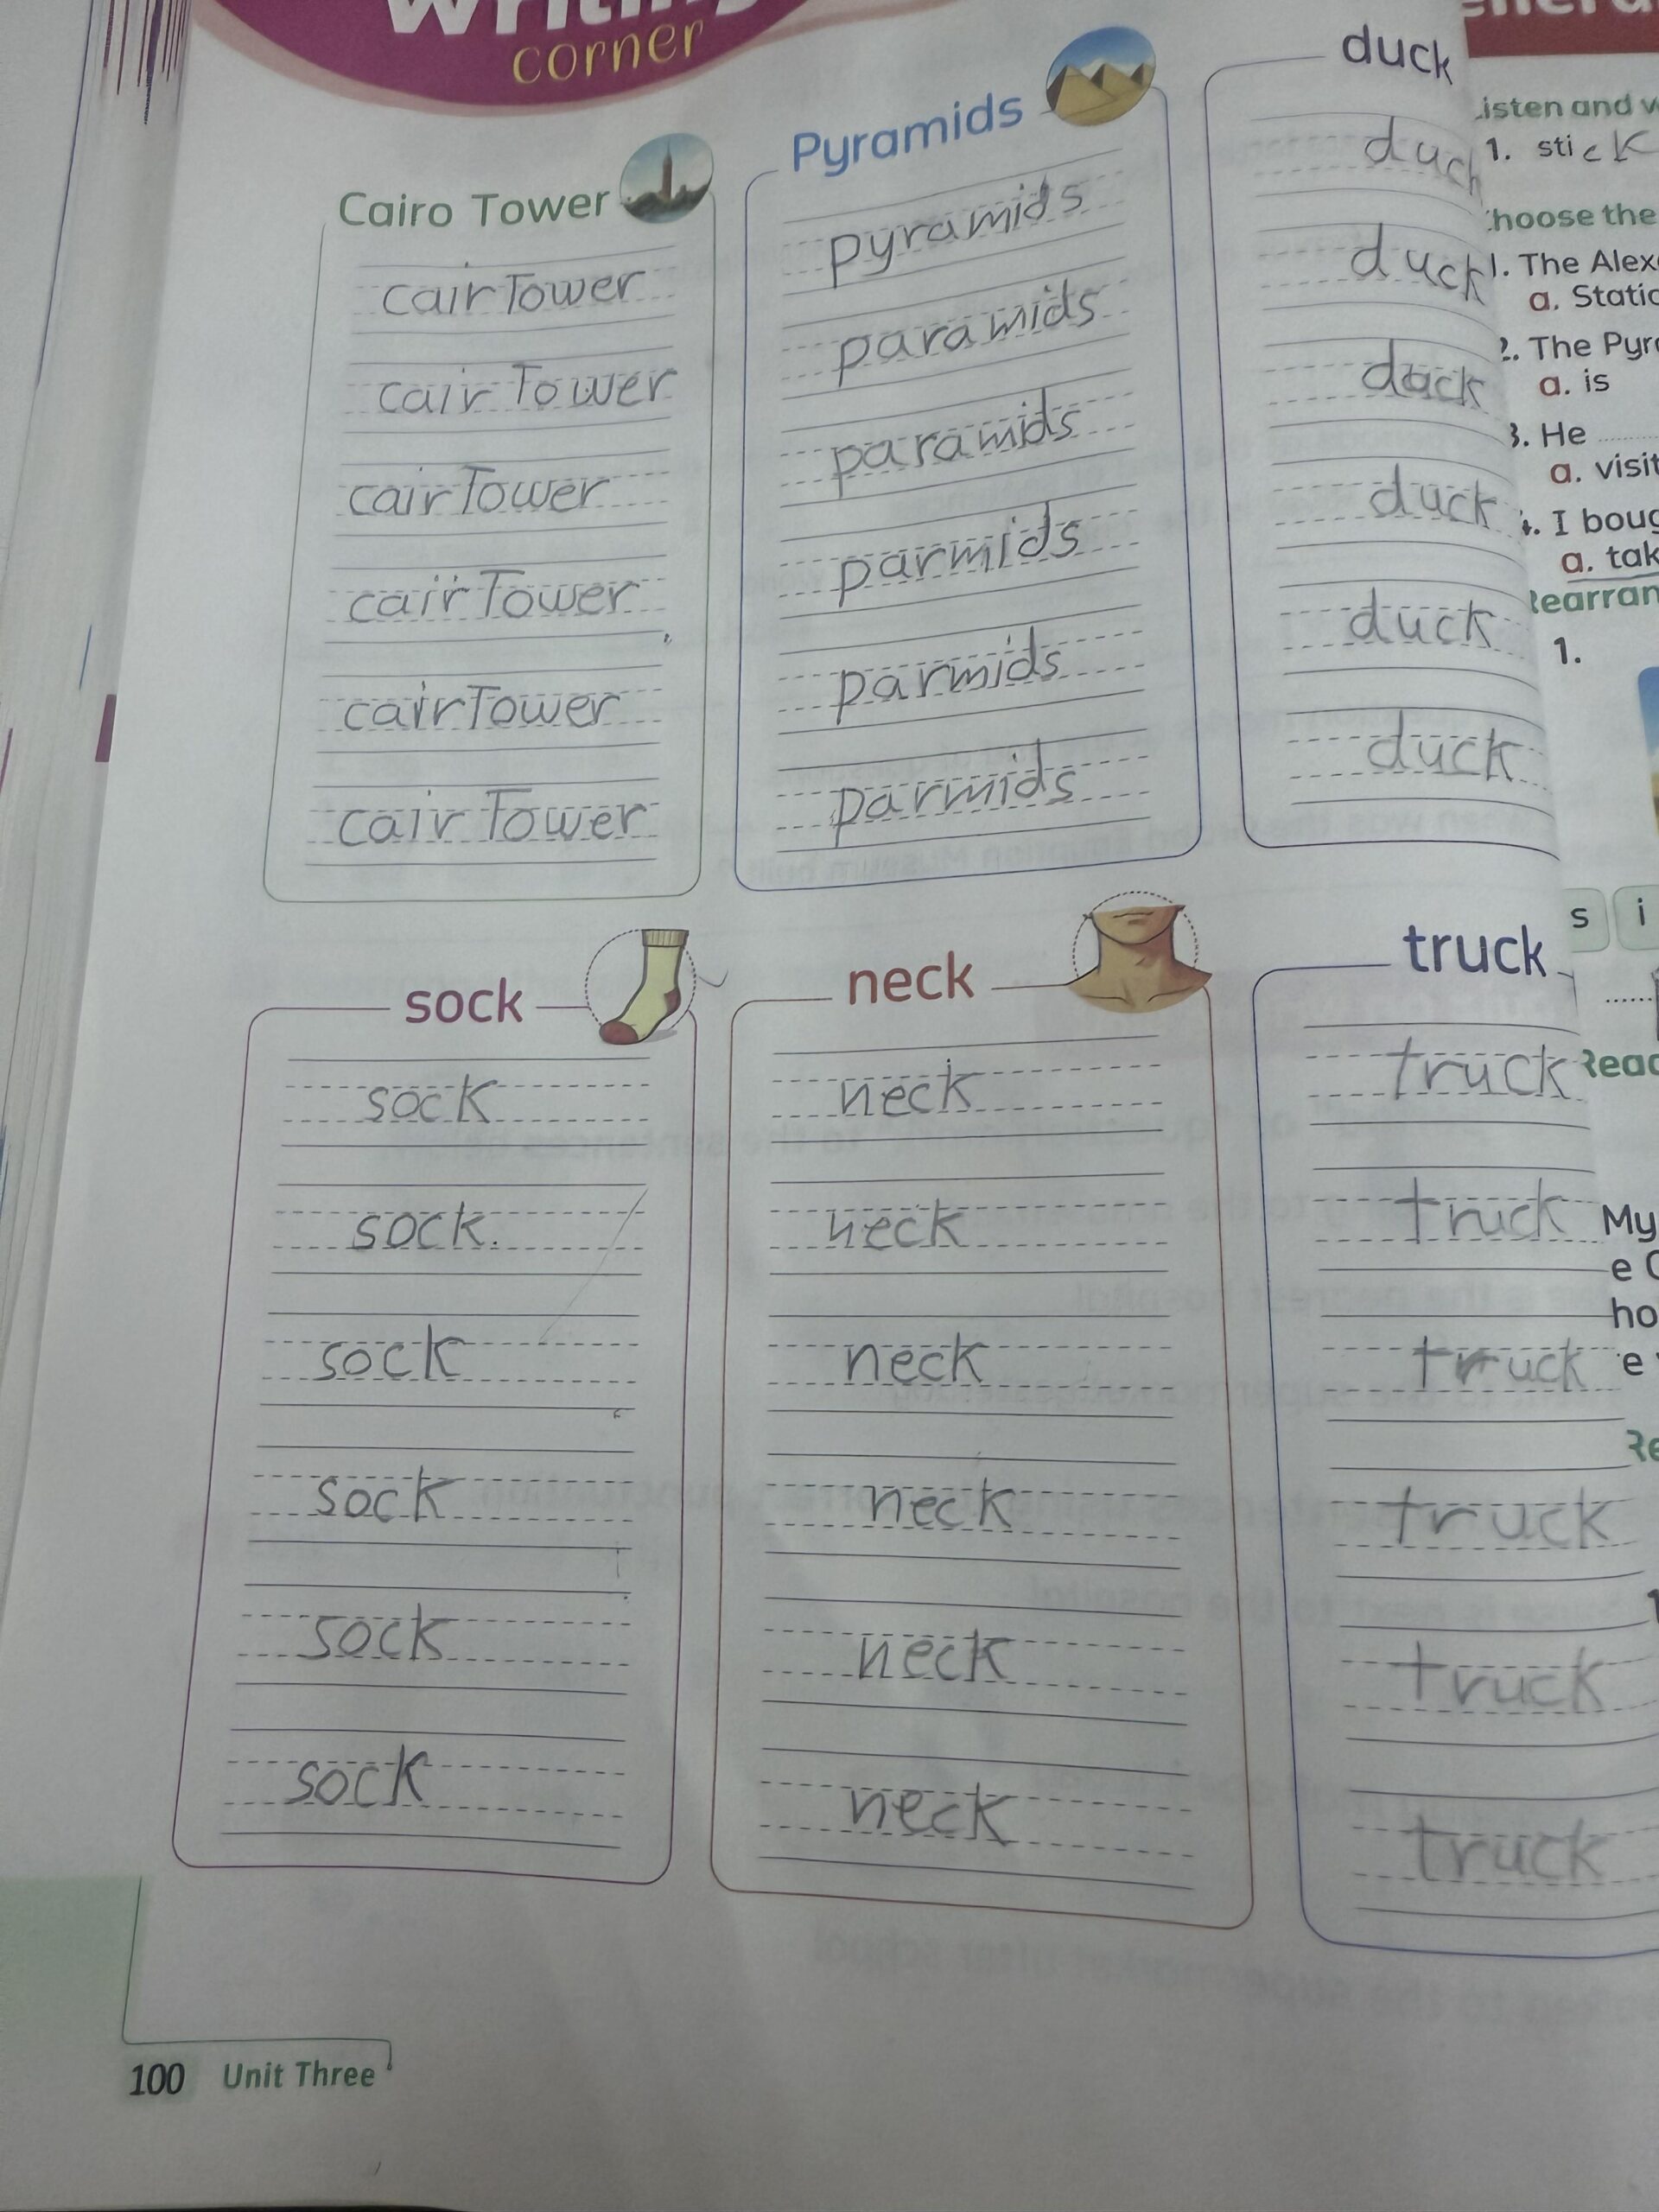 writing
corner
Cairo Tower
cair Tower
cair Tower
cair Tower
cair Tower
cair Tower
cair Tower
Pyramids
pyramids
paramids
paramids
parmids
parmids
parmids
duck
duck
duck
duck
duck
duck
sock
sock
sock
sock
sock
sock
sock
neck
neck
neck
neck
neck
neck
neck
truck
truck
truck
truck
truck
truck
truck
100 Unit Three
isten and w
1. stick
hoose the
1. The Alex
a. Static
2. The Pyr
a. is
3. He
a. visit
4. I boug
a. tak
Rearran
1.
s i
Read
My
e C
ho
e
Re